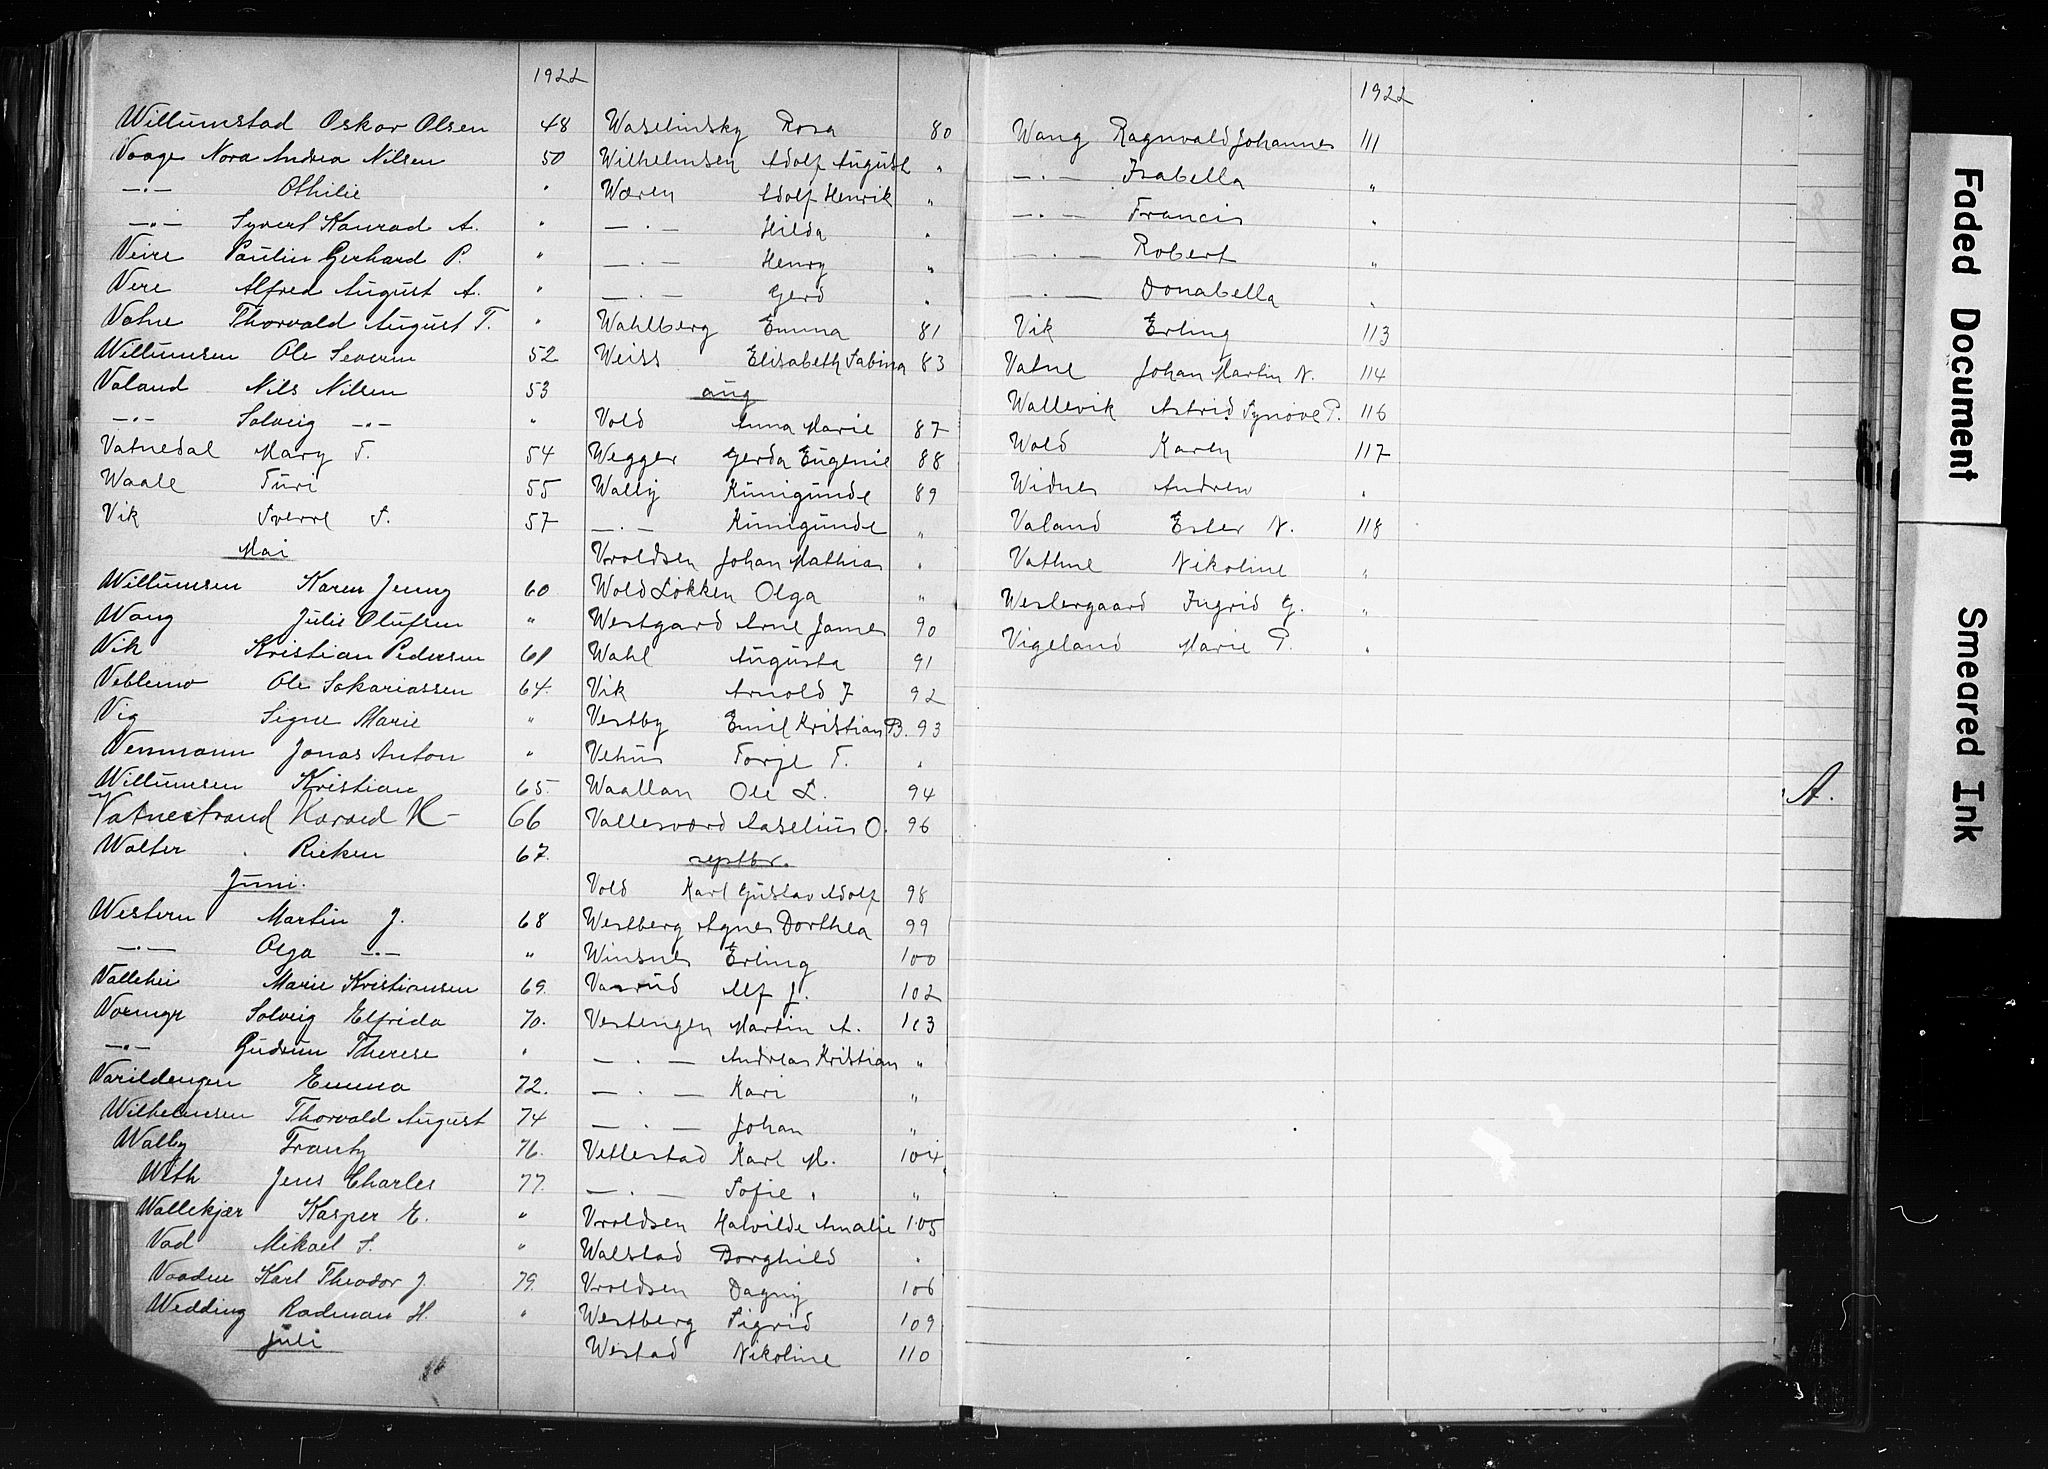 1922
Willumstad Oskar Olsen 48
Vaage Nora Andrea Nilsen 50
—„— Othilie "
—„— Syvert Konrad A. "
Veire Paulin Gerhard P. "
Vere Alfred August A. "
Vatne Thorvald August T. "
Willumsen Ole Severin 52
Valand Nils Nilsen 53
—„— Solveig —„— "
Vatnedal Mary T. 54
Waale Turi 55
Vik Sverre S. 57
Mai
Willumsen Karen Jenny 60
Wang Julie Olufsen "
Vik Kristian Pedersen 61
Veblemo Ole Sakariassen 64
Vig Signe Marie "
Wennmann Jonas Anton "
Willumsen Kristian 65
Vatnestrand Harald K 66
Walter Rieken 67
Juni.
Western Martin J. 68
—„— Olga —„— "
Vallehei Marie Kristiansen 69
Vormyr Solveig Elfrida 70.
—„— Gudrun Therese "
Varildengen Emma 72.
Wilhelmsen Thorvald August 74
Walby Frantz 76.
Weth Jens Charles 77
Wallekjær Kasper E. "
Vad Mikael S. "
Vaadne Karl Theodor J. 79.
Wedding Radman H. "
Juli
Waselinsky Rosa 80
Wilhelmsen Adolf August "
Wæren Adolf Henrik "
—„— Hilda "
—„— Henry "
—„— Gerd "
Wahlberg Emma 81
Weiss Elisabeth Sabina 83
aug
Vold Anna Marie 87
Wegger Gerda Eugenie 88
Wally Kunigunde 89
—„— Kunigunde "
Vroldsen Johan Mathias "
Wold Løkken Olga "
Westgard Arne James 90
Wahl Augusta 91
Vik Arnold J 92
Vestby Emil Kristian B. 93
Vehus Torje T. "
Waallan Ole L. 94
Vallesværd Aaselius O. 96
septbr.
Vold Karl Gustav Adolf 98
Westberg Agnes Dorthea 99
Winsnes Erling 100
Vasrud Alf J. 102
Vestengen Martin A. 103
—„— Andreas Kristian "
—„— Kari "
—„— Johan "
Vetlestad Karl M. 104
—„— Sofie "
Vroldsen Halvilde Amalie 105
Walstad Borghild "
Vroldsen Dagny 106
Westberg Sigrid 109
Westad Nikoline 110
1922
Wang Ragnvald Johannes 111
—„— Isabella "
—„— Francis "
—„— Robert "
—„— Donabella "
Vik Erling 113
Vatne Johan Martin N. 114
Wallevik Astrid Synøve P. 116
Wold Karen 117
Widnes Andrew "
Valand Ester N. 118
Vathne Nikoline "
Westergaard Ingrid G. "
Vigeland Marie P. "
A.
Faded Document
Smeared Ink